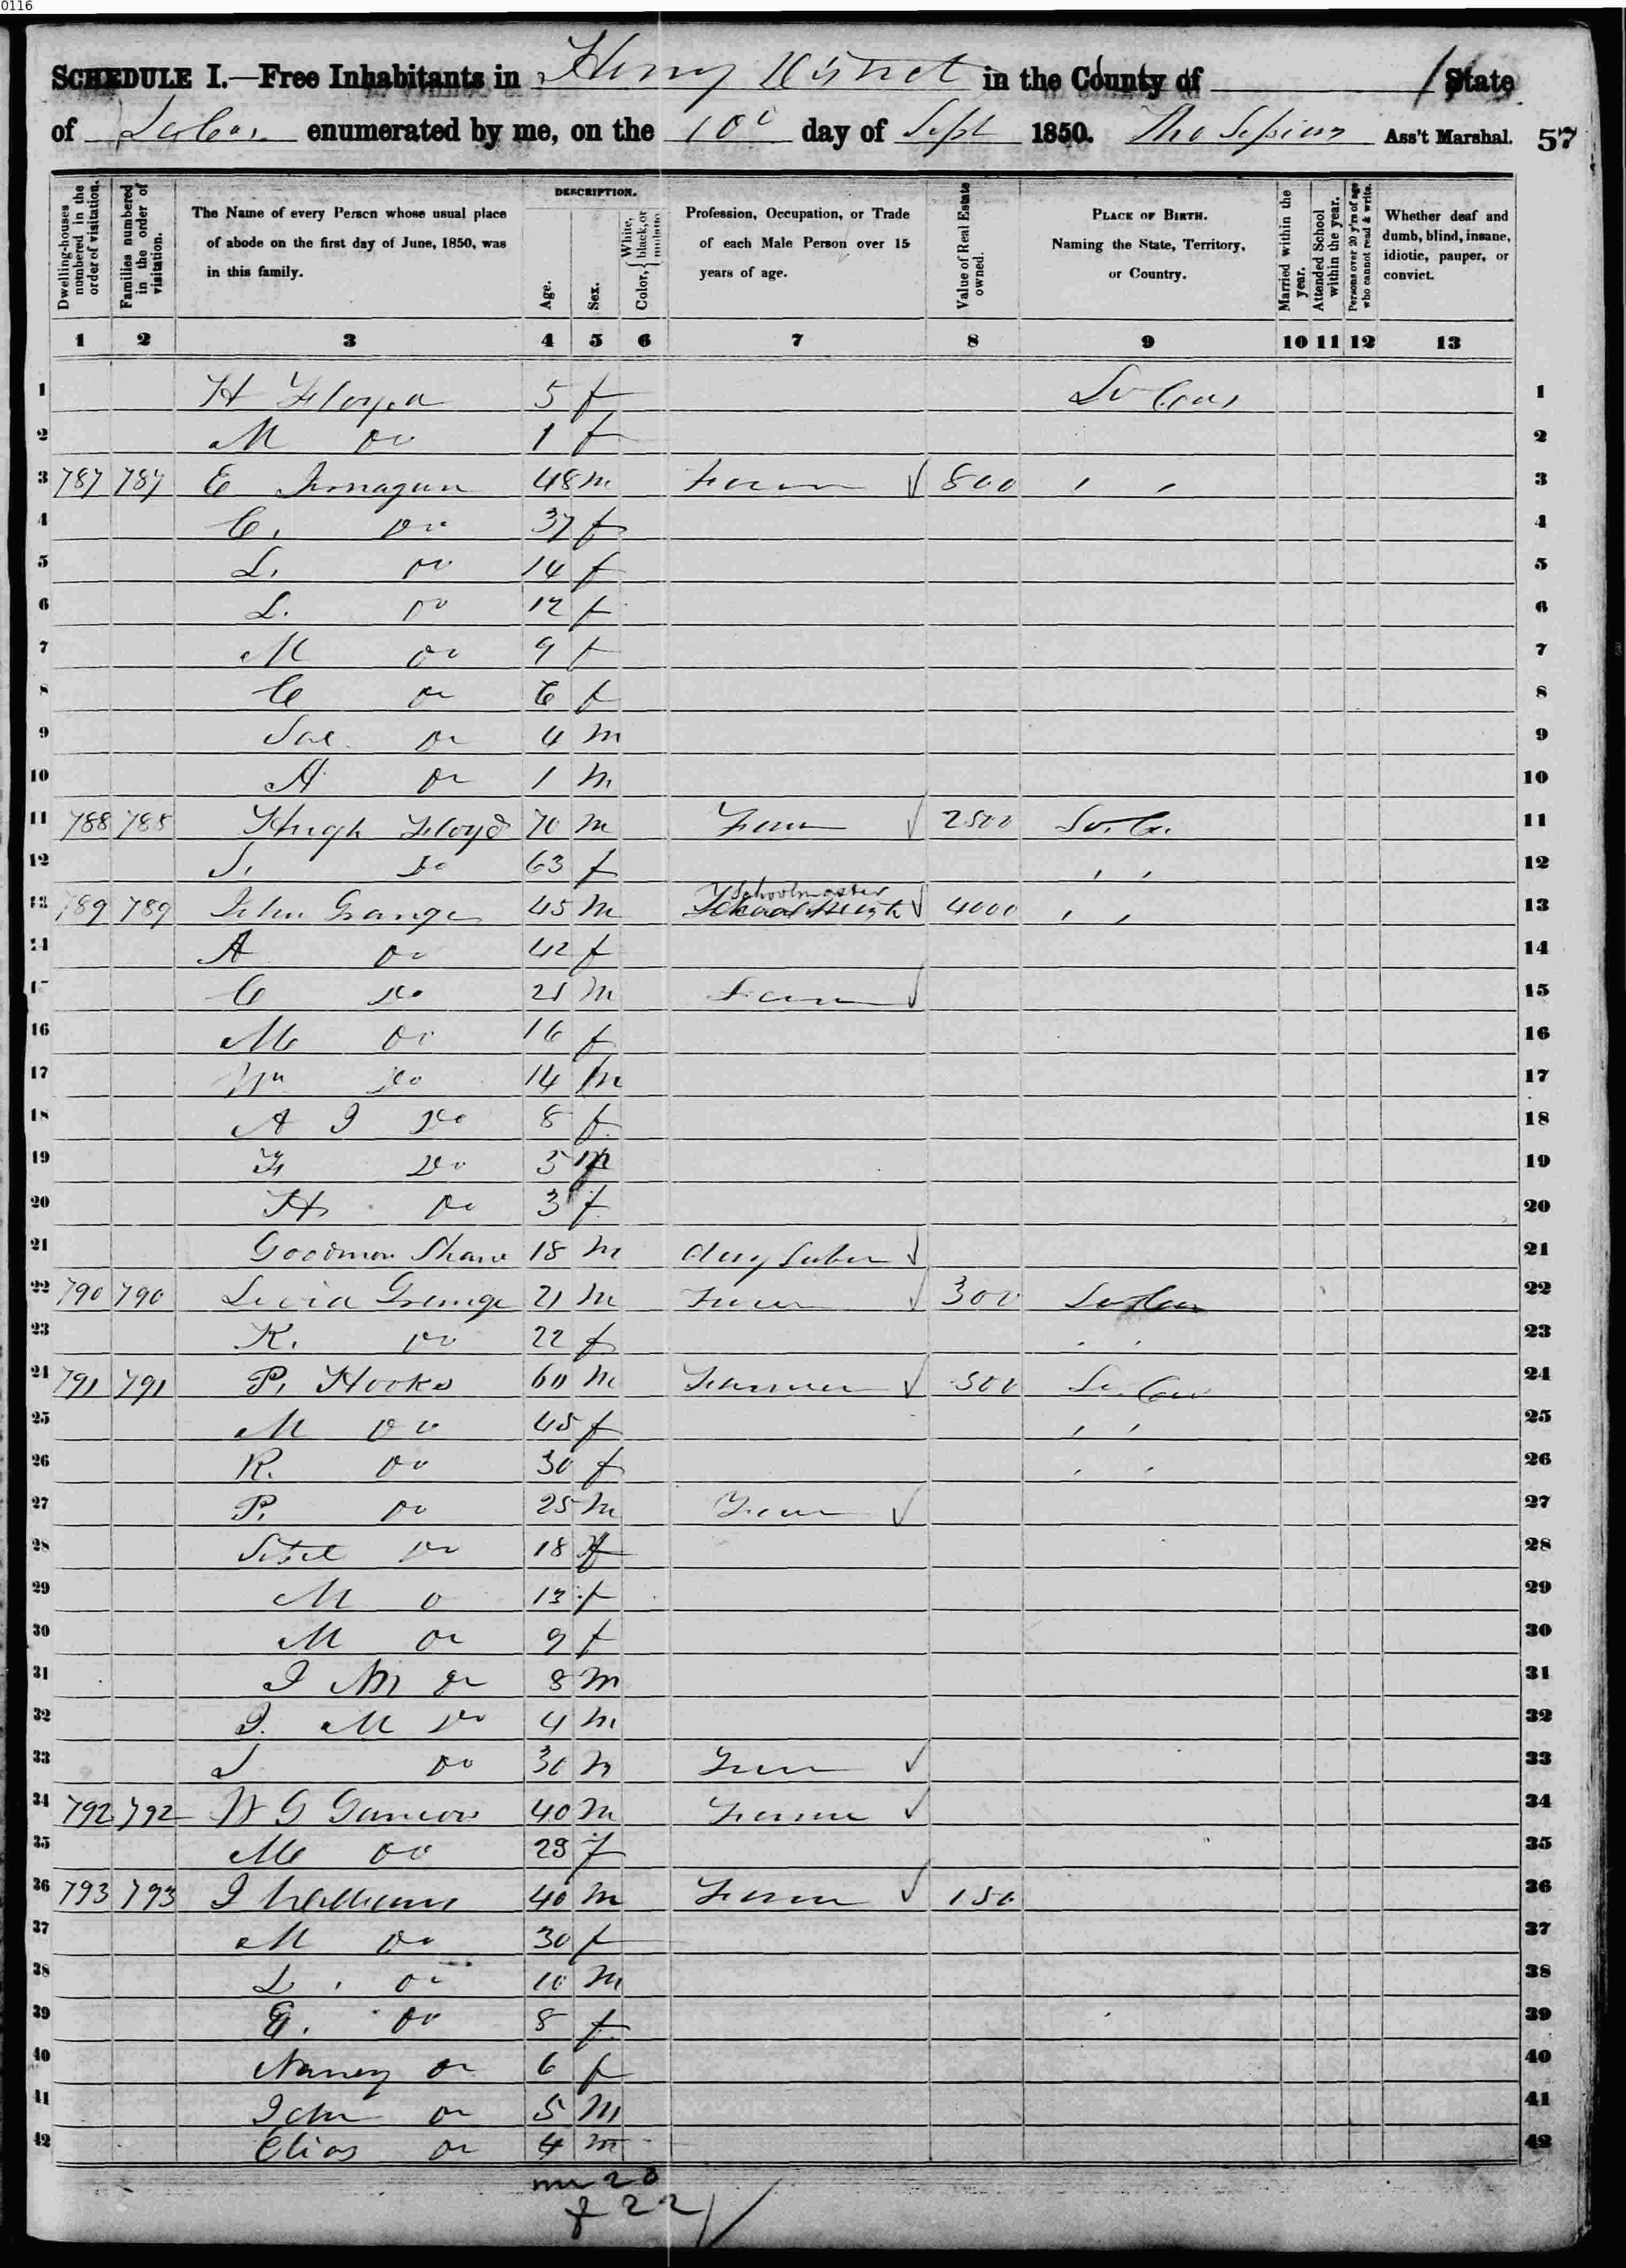 0116
SCHEDULE I.—Free Inhabitants in Horry District in the County of State
of So Car. enumerated by me, on the 10th day of Sept 1850. Tho Sessions Ass't Marshal. 57
Dwelling-houses numbered in the order of visitation. Families numbered in the order of visitation. The Name of every Person whose usual place of abode on the first day of June, 1850, was in this family. DESCRIPTION. Age. Sex. Color, White, black, or mulatto. Profession, Occupation, or Trade of each Male Person over 15 years of age. Value of Real Estate owned. PLACE OF BIRTH. Naming the State, Territory, or Country. Married within the year. Attended School within the year. Persons over 20 y'rs of age who cannot read & write. Whether deaf and dumb, blind, insane, idiotic, pauper, or convict.
1 2 3 4 5 6 7 8 9 10 11 12 13
1 H Floyd 5 f So Car 1
2 M Do 1 f 2
3 787 787 E 48 m Farm 800 " " 3
4 C. Do 37 f 4
5 L. Do 14 f 5
6 L. Do 12 f 6
7 M Do 9 f 7
8 C Do 6 f 8
9 Do 4 m 9
10 A Do 1 m 10
11 788 788 Hugh Floyd 70 m Farm 2500 So. Ca. 11
12 S. Do 63 f " " 12
13 789 789 John Grainger 45 m Schoolmaster 4000 " " 13
14 A Do 42 f 14
15 C Do 21 m Farm 15
16 M Do 16 f 16
17 Wm Do 14 m 17
18 A J Do 8 f 18
19 F Do 5 m 19
20 H Do 3 f 20
21 Goodman Shaw 18 m 21
22 790 790 Grainger 21 m Farm 300 So Car 22
23 K. Do 22 f " " 23
24 791 791 P. Hooks 60 m Farmer 500 So. Car 24
25 M Do 45 f " " 25
26 R. Do 30 f " " 26
27 P. Do 25 m Farm 27
28 Do 18 f 28
29 M Do 13 f 29
30 M Do 9 f 30
31 J M Do 8 m 31
32 J. M Do 4 m 32
33 J Do 30 m Farm 33
34 792 792 W G 40 m Farmer 34
35 M Do 29 f 35
36 793 793 J Williams 40 m Farm 150 36
37 M Do 30 f 37
38 D. Do 10 m 38
39 E. Do 8 f 39
40 Nancy Do 6 f 40
41 John Do 5 m 41
42 Elias Do 4 m 42
m 20
f 22